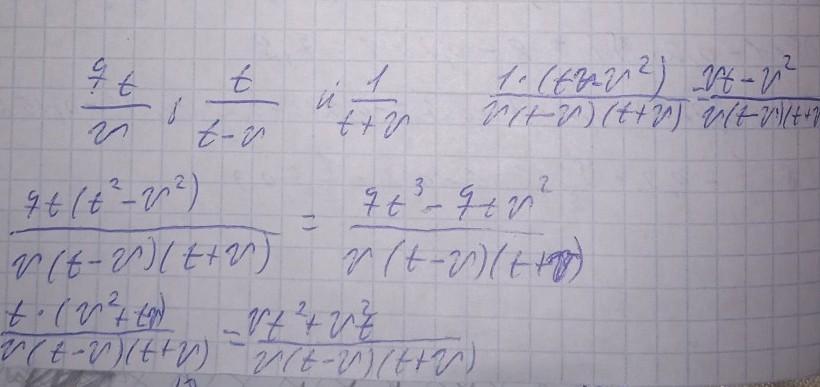 9t/v ; t/(t-v) и 1/(t+v) 1·(tv-v²)/(v(t-v)(t+v)) = (vt-v²)/(v(t-v)(t+v
9t(t²-v²)/(v(t-v)(t+v)) = (9t³-9tv²)/(v(t-v)(t+v))
t·(v²+tv)/(v(t-v)(t+v)) = (vt²+v²t)/(v(t-v)(t+v))